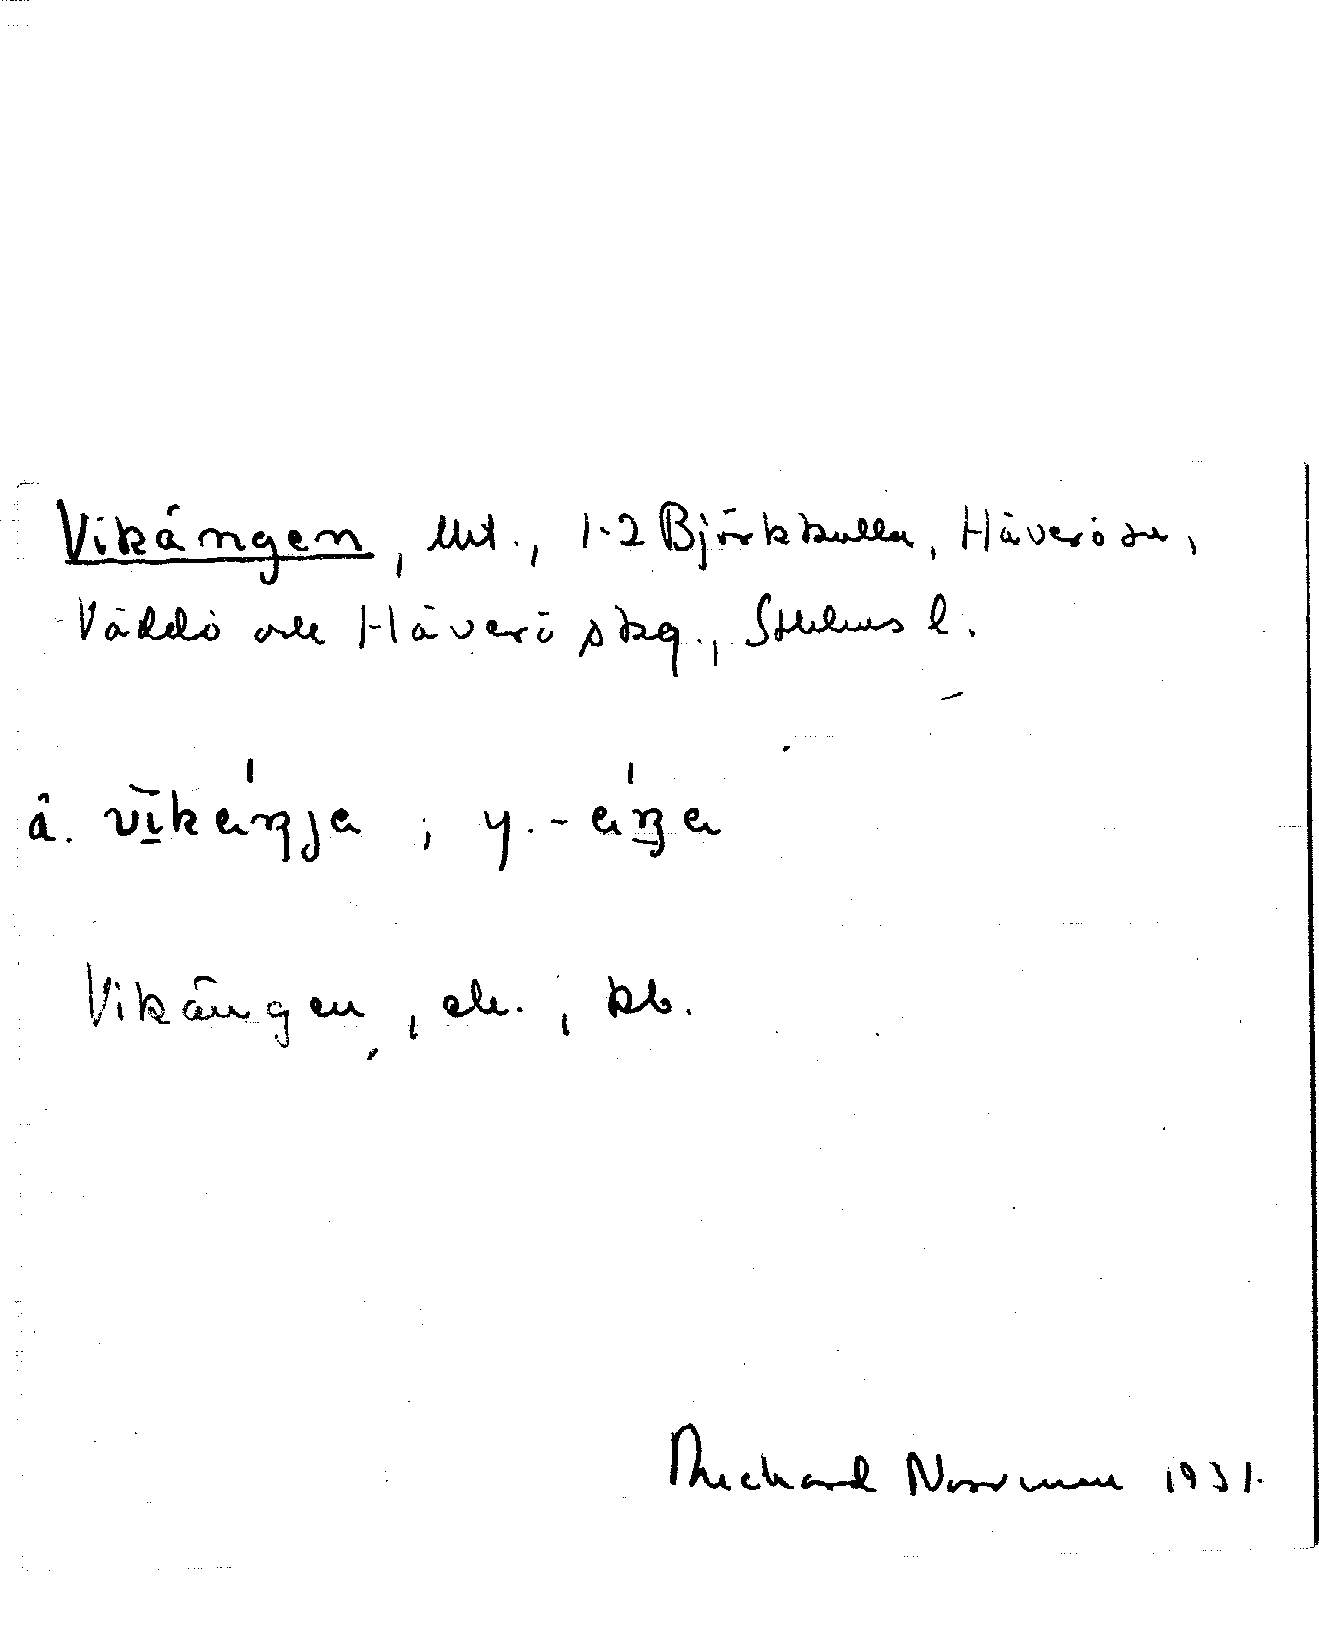 Vikängen, lht., 1-2 Björkkulla, Häverö sn,
Väddö och Häverö skg., Sthlms l.
ä. vīkáŋja, y. -áŋa
Vikängen, ek., kb.
Richard Norrman 1931.